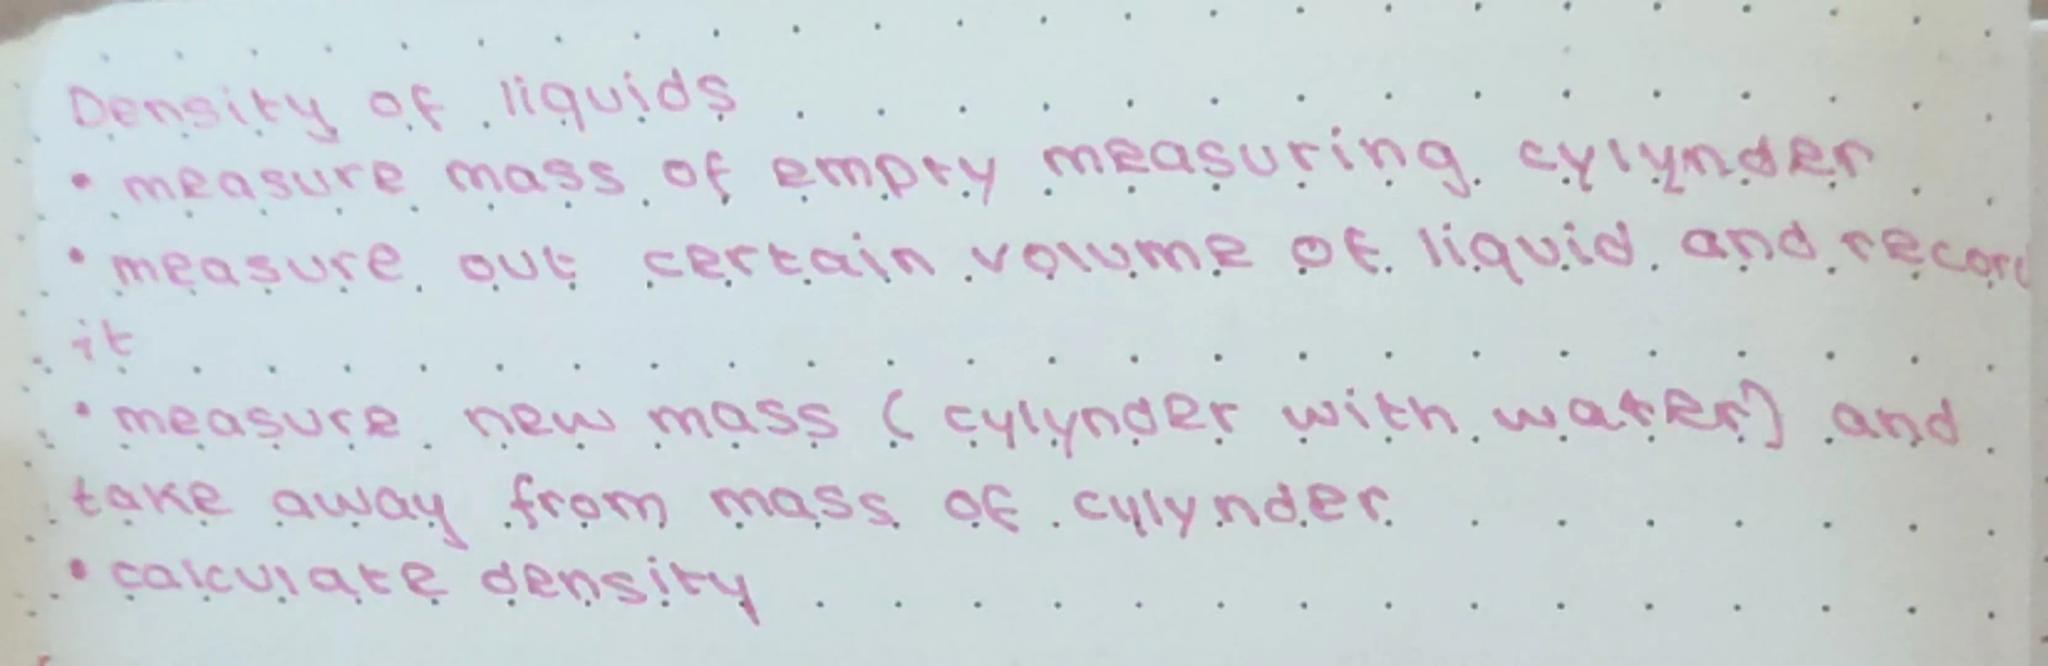 Density of liquids
• measure mass of empty measuring cylynder
• measure out certain volume of liquid and record
it
• measure new mass (cylynder with water) and
take away from mass of cylynder
• calculate density